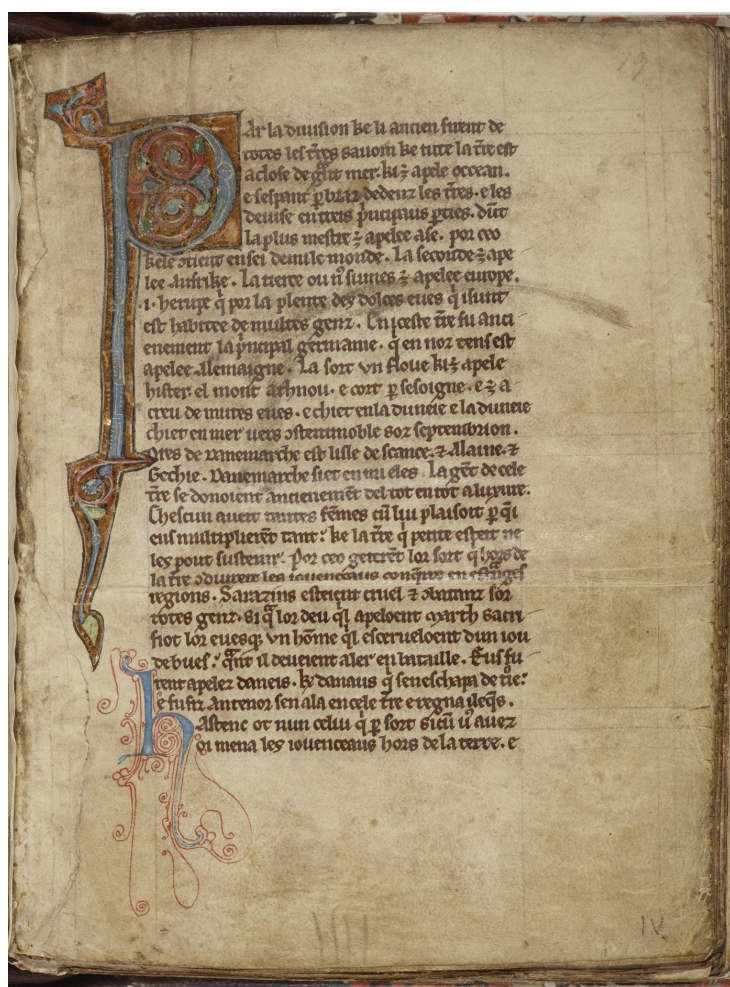 19
PAr la diuision ke li ancien firent de
totes les t̃res sauom ke tute la t̃re est
aclose de gᵃnt mer. ki ⁊ apele occean.
e sespant ꝑ braz dedenz les t̃res. e les
deuise en treis pͥncipaus ꝑties. dunt
la plus mestre ⁊ apelee ase. por ceo
kele ↄtient en sei demi le monde. La secunde ⁊ ape
lee Aufrike. La tierce ou nꝰ sumes ⁊ apelee europe.
.i. herupe q̇ por la plente des dolces eues q̇ i sunt
est habitee de multes genz. En iceste t̃re fu anci
enement la pͥncipal germanie. q̇ en nor tens est
apelee Alemaigne. La sort vn floue ki ⁊ apele
hister. el mont athnou. e cort ꝑ sesoigne. e ⁊ a
creu de mutes eues. e chiet en la duneie e la duneie
chiet en mer uers ↄstentinoble sor septembrion.
Pres de Danemarche est lisle de scance. ⁊ Alaine. ⁊
Gechie. Danemarche siet en mi eles. La gẽt de cele
t̃re se donoient ancienemẽt del tot en tot a luxure.
Chescun aueit tantes fẽmes cũ lui plaisoit ꝑ q̇i
eus multiplierẽt tant: ke la t̃re q̇ petite esteit ne
les pout sustenir. Por ceo geterẽt lor sort q̇ hors de
la t̃re ↄduireit les iouenceaus conq̃rre en estᵃnges
regions. Sarazins esteient cruel ⁊ ↄbatanz sor
totes genz. si qᵃ lor deu qͥl apeloent march sacri
fiot lor euesq; vn hõme qͥl escerueloent dun iou
de bues: qᵃnt il deueient aler en bataille. Eus fu
rent apelez daneis. ky danaus q̇ seneschapa de t̃ie:
e fu fiz Antenor sen ala en cele t̃re e regna ileq̃s.
HAstenc ot nun celui q̇ ꝑ sort sicũ uꝰ auez
oi mena les iouenceaus hors de la terre. e
IV